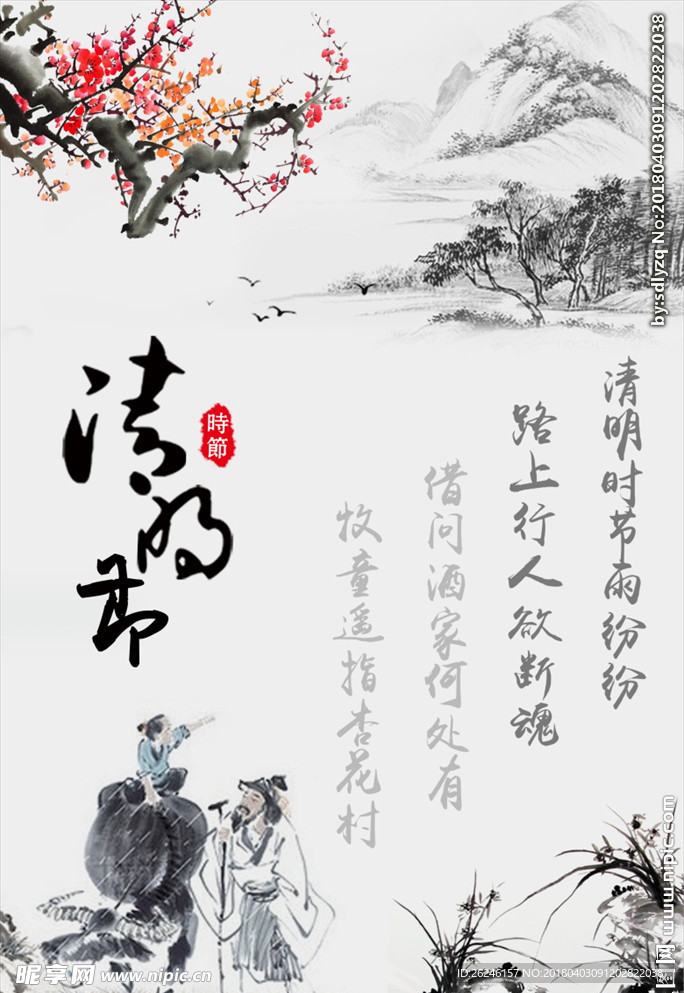 清明节
時節
清明时节雨纷纷
路上行人欲断魂
借问酒家何处有
牧童遥指杏花村
by:sdlyzq No:20180403091202822038
www.nipic.com
昵图网
昵享网 www.nipic.cn
ID:26246157 NO:20180403091202822038